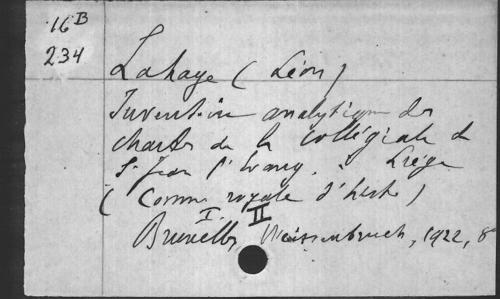 16 B
234
Lahaye (Léon)
Inventaire analytique des
chartes de la collégiale de
St Jean l'Evang. à Liège
(Comm. royale d'hist.)
I. II
Bruxelles, Weissenbruch, 1922, 8°